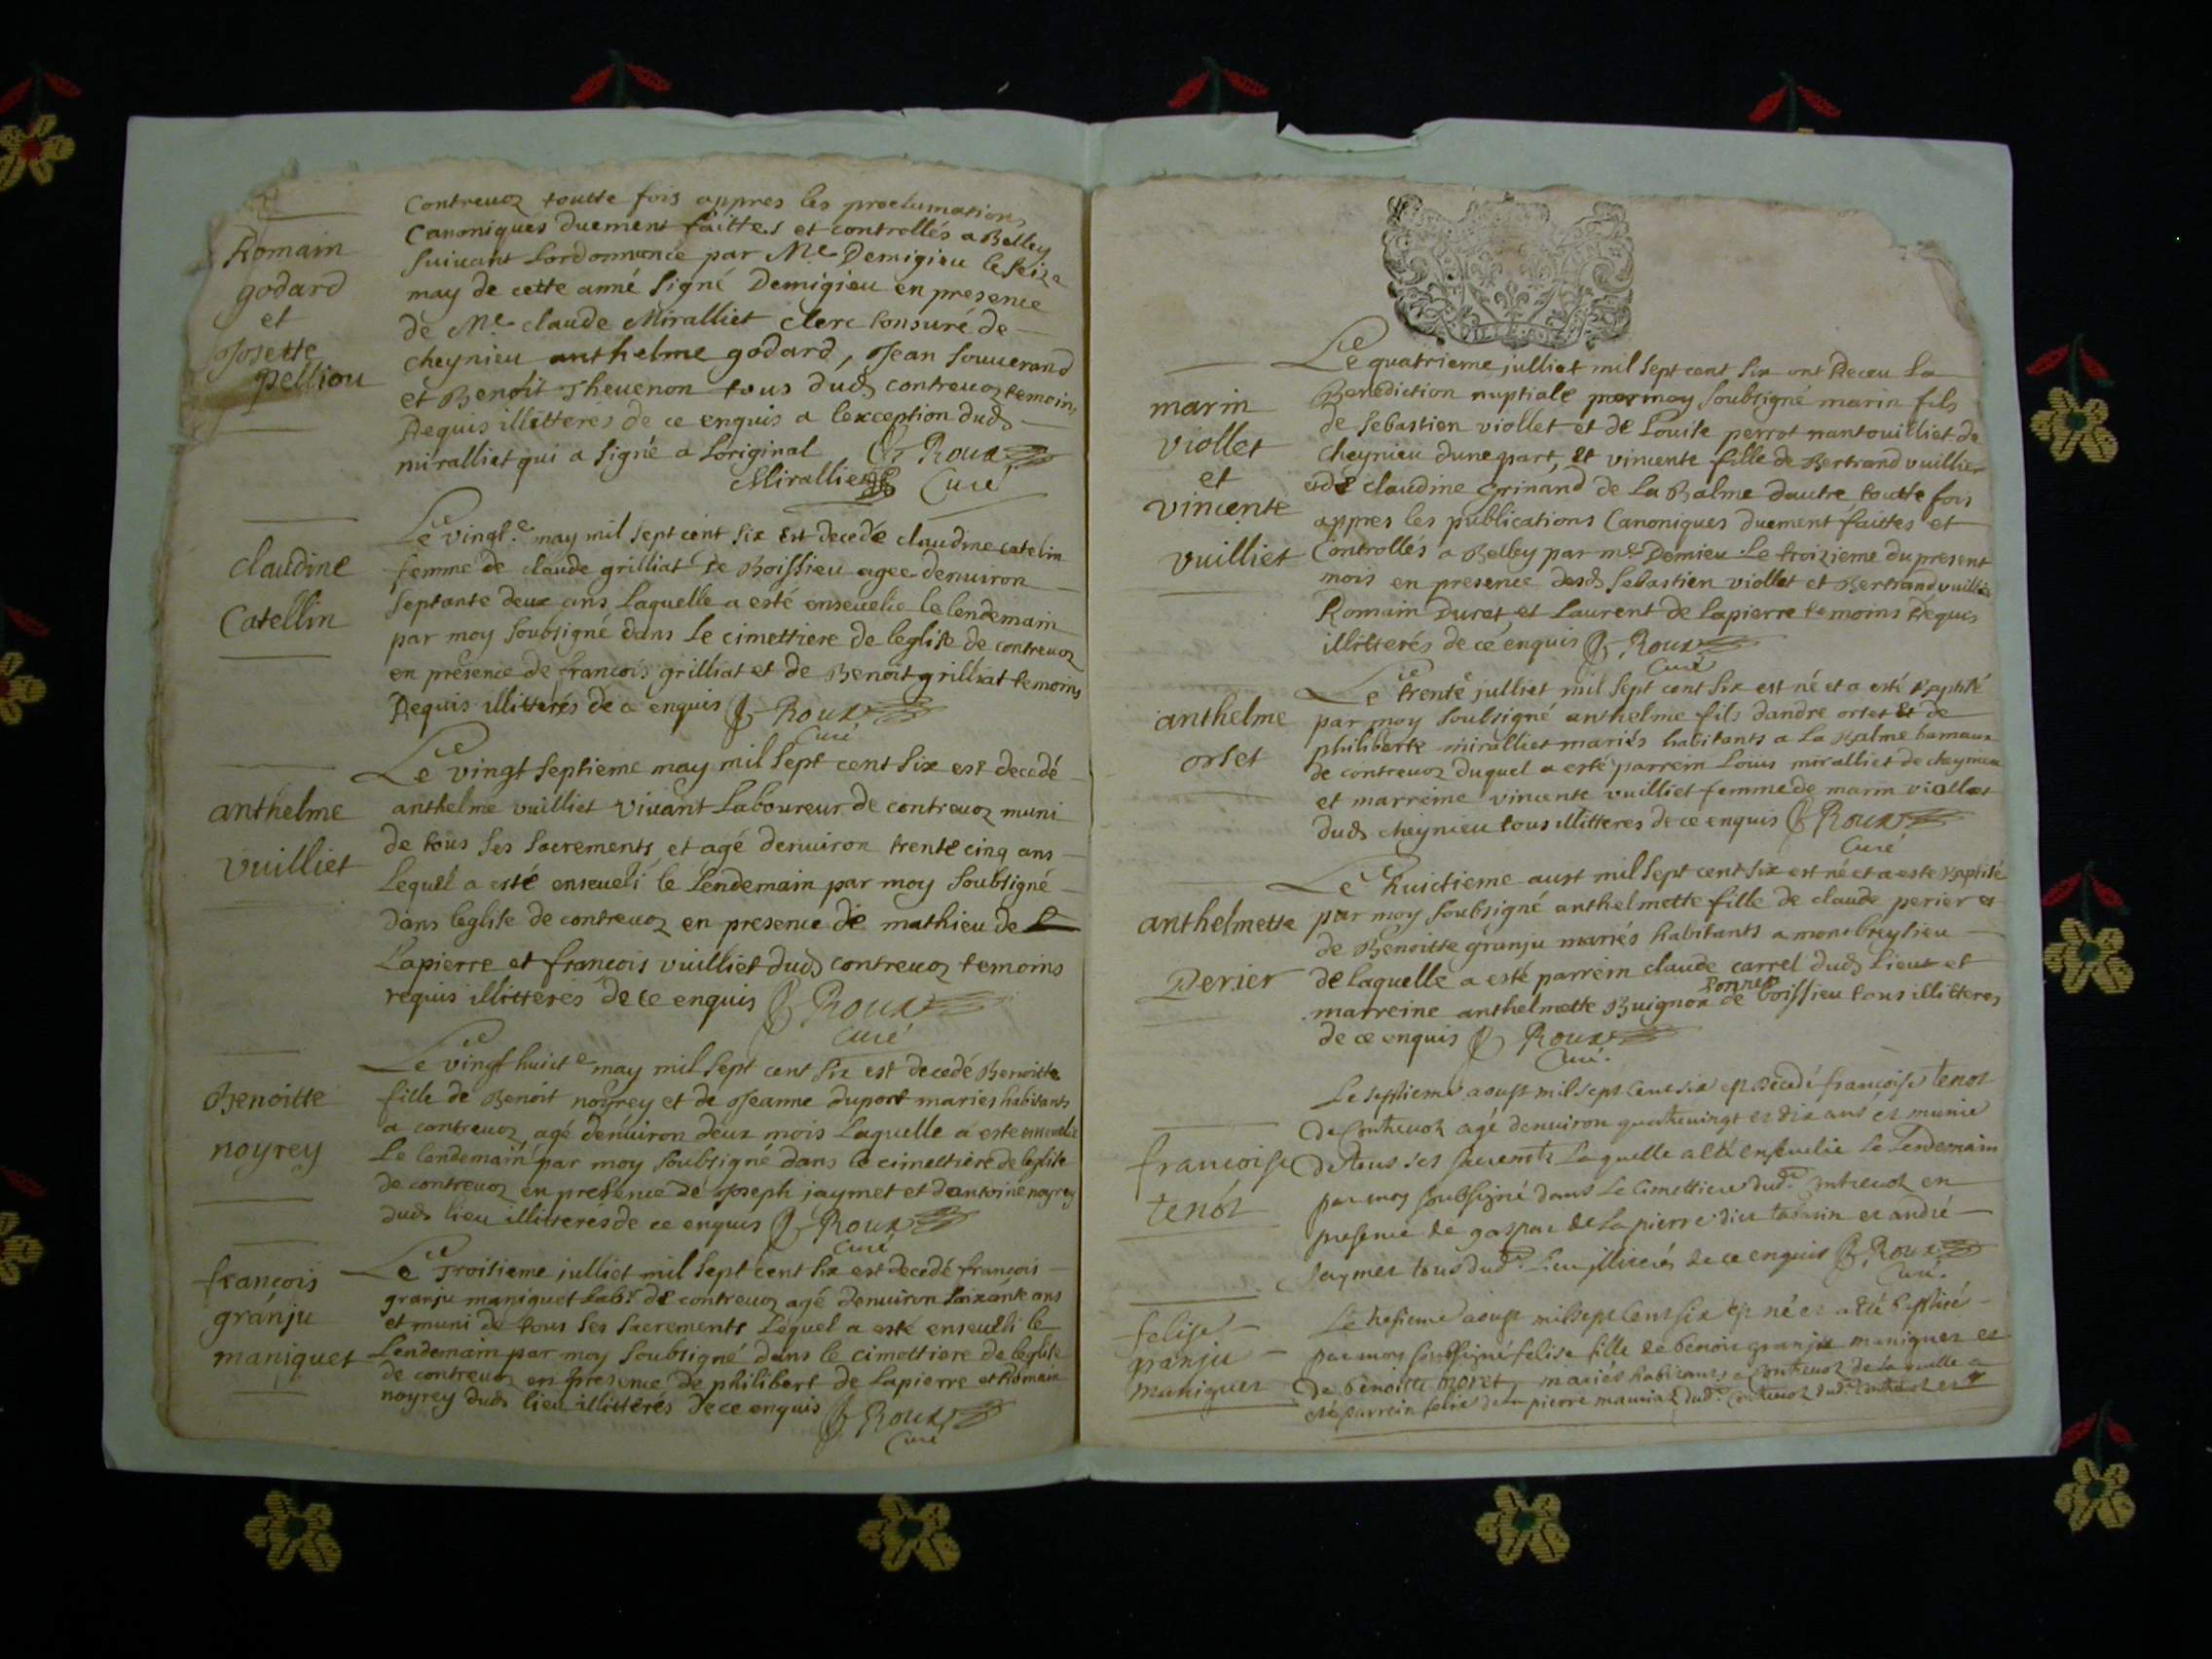 Romain
godard
et
Josette
pelliou
Contreuoz toutte fois appres les proclumations
Canoniques duement faittes et controllés a Belley
suiuant lordonnance par Me Demigieu le seize
may de cette anné signé Demigieu en presence
de Me claude Miralliet clerc tonsuré de
cheynieu anthelme godard, Jean souuerand
et Benoit Theuenon tous dud contreuoz temoins
Requis illitteres de ce enquis a lexception dud
miralliet qui a signé a loriginal Roux
Miralliet Curé
claudine
Catellin
Le vingt.e may mil sept cent six est decedé claudine catelin
femme de claude grilliat de Boissieu agee denuiron
septante deux ans laquelle a esté enseuelie le lendemain
par moy soubsigné dans le cimettiere de leglise de contreuoz
en présence de françois grilliat et de Benoit grilliat temoins
Requis illitterés de ce enquis Roux
Curé
anthelme
vuilliet
Le vingt septieme may mil sept cent six est decedé
anthelme vuilliet viuant laboureur de contreuoz muni
de tous ses sacrements et agé denuiron trente cinq ans
lequel a esté enseueli le lendemain par moy soubsigné
dans leglise de contreuoz en presence de mathieu de
Lapierre et francois vuilliet dud contreuoz temoins
requis illitteres de ce enquis Roux
Curé
Benoitte
noyrey
Le vingt huict e may mil sept cent six est decedé Benoitte
fille de Benoit noyrey et de Jeanne duport maries habitants
a contreuoz, agé denuiron deux mois laquelle a este enseuelie
le lendemain par moy soubsigné dans le cimettiere de leglise
de contreuoz en presence de Joseph jaymet et dantoine noyrey
dud lieu illitterés de ce enquis Roux
Curé
françois
granju
maniquet
Le Troisieme julliet mil sept cent six est decedé françois
granju maniquet labr de contreuoz agé denuiron soixante ans
et muni de tous ses sacrements lequel a esté enseueli le
lendemain par moy soubsigné dans le cimettiere de leglise
de contreuoz en presence de philibert de Lapierre et Romain
noyrey dud lieu illitterés de ce enquis Roux
Curé
marin
viollet
et
vincente
vuilliet
Le quatrieme julliet mil sept cent six ont Receu la
Benediction nuptiale par moy soubsigné marin fils
de sebastien viollet et de Louise perrot nantouilliet de
cheynieu dune part, et vincente fille de Bertrand vuillier
et de claudine Grinand de la Balme dautre toutte fois
appres les publications Canoniques duement faittes et
Controllés a Belley par me Demieu le troizieme du present
mois en presence desd sebastien viollet et Bertrand vuilliet
Romain Duret, et Laurent de lapierre temoins Requis
illitterés de ce enquis Roux
Curé
anthelme
orset
Le trente julliet mil sept cent six est né et a esté baptisé
par moy soubsigné anthelme fils dandre orset et de
philiberte miralliet mariés habitants a la Balme hamaux
de contreuoz duquel a esté parrein Loüis miralliet de cheynieu
et marreine vincente vuilliet femme de marin viollet
dud cheynieu tous illitteres de ce enquis Roux
Curé
anthelmette
perier
Le huictieme aust mil sept cent six est né et a este baptisé
par moy soubsigné anthelmette fille de claude perier et
de Benoitte granju mariés habitants a montbreylieu
de laquelle a esté parrein claude carrel dud lieu et
marreine anthelmette Buignon de boissieu tous illitteres
de ce enquis Roux
Curé.
francoise
tenoz
Le septieme aoust mil sept cent six est decedé françoise tenoz
de Contreuoz agé denuiron quattreuingt et dix ans et munie
de tous ses sacremts laquelle a été enseuelie le lendemain
par moy soubsigné dans le cimettiere dud. Contreuoz en
presence de gaspar de lapierre dit et andré
Jaymet tous dud. lieu illiterés de ce enquis Roux
Curé.
felise
granju
maniquet
Le aoust mil sept cent six est né et a été baptisé
par moy soubsigné felise fille de benoit granju maniquet et
de benoitte moret, mariés habitants a Contreuoz de laquelle a
été parrein felix de la pierre dud. Contreuoz dud. Contreuoz et